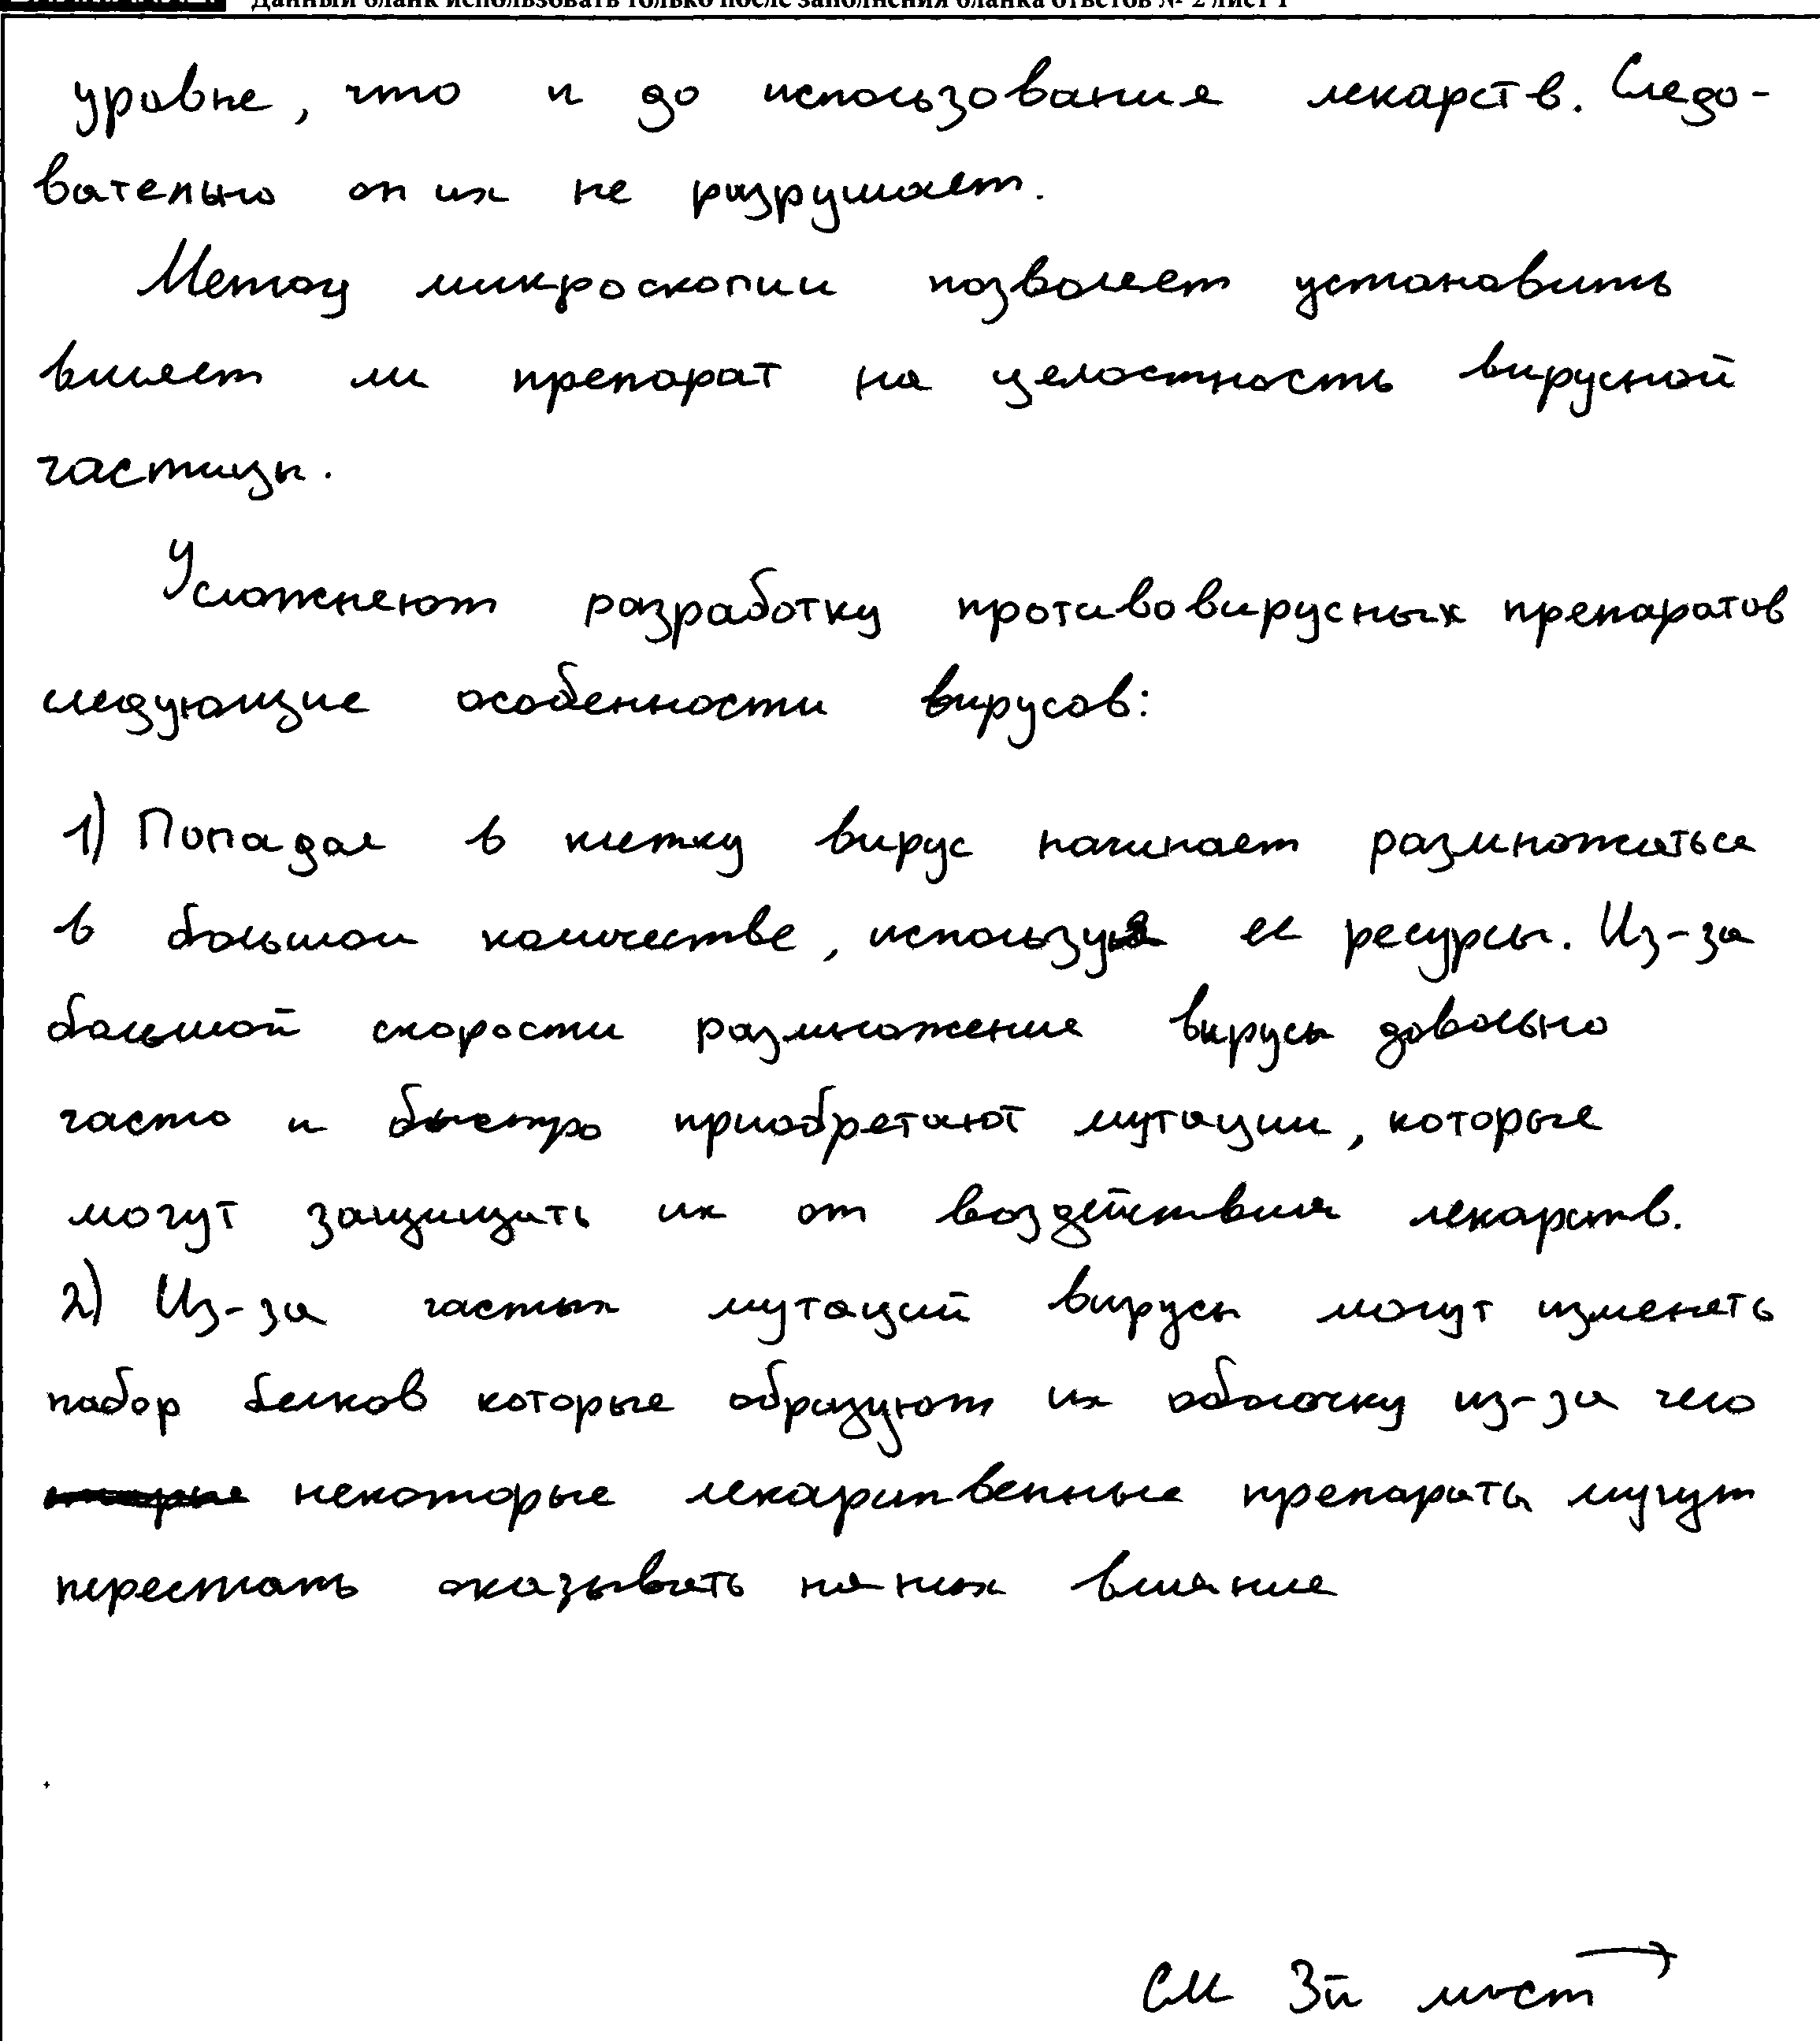 Данный бланк использовать только после заполнения бланка ответов № 2 лист 1
уровне, что и до использования лекарств. Следо-
вательно он их не разрушает.
Метод микроскопии позволяет установить
влияет ли препарат на целостность вирусной
частицы.
Усложняют разработку противовирусных препаратов
следующие особенности вирусов:
1) Попадая в клетку вирус начинает размножаться
в большом количестве, используя ее ресурсы. Из-за
большой скорости размножения вирусы довольно
часто и быстро приобретают мутации, которые
могут защищать их от воздействия лекарств.
2) Из-за частых мутаций вирусы могут изменять
набор белков которые образуют их оболочку из-за чего
некоторые лекарственные препараты могут
перестать оказывать на них влияние
СМ 3й лист →